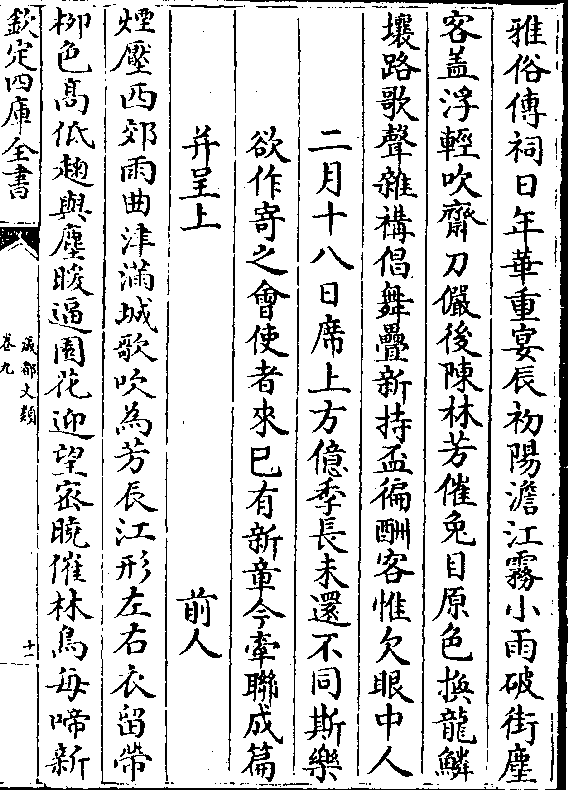 雅俗傳祠日年華重宴辰初陽澹江霧小雨破街塵
客盖浮輕吹齋刀儼後陳林芳催兔目原色換龍鱗
壤路歌聲雜褠倡舞疊新持盃徧酬客惟欠眼中人
二月十八日席上方億季長未還不同斯樂
欲作寄之會使者來已有新章今牽聯成篇
并呈上 前人
煙壓西郊雨曲津滿城歌吹為芳辰江形左右衣留帶
栁色髙低趂與塵暖逼園花迎望宻曉催林鳥毎啼新
欽定四庫全書
成都文類
卷九
十一